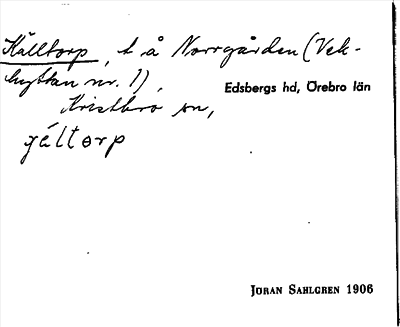 Källtorp, t å Norrgården (Vek-
hyttan nr. 1),
Edsbergs hd, Örebro län
Kristbro sn,
gältorp
JÖRAN SAHLGREN 1906